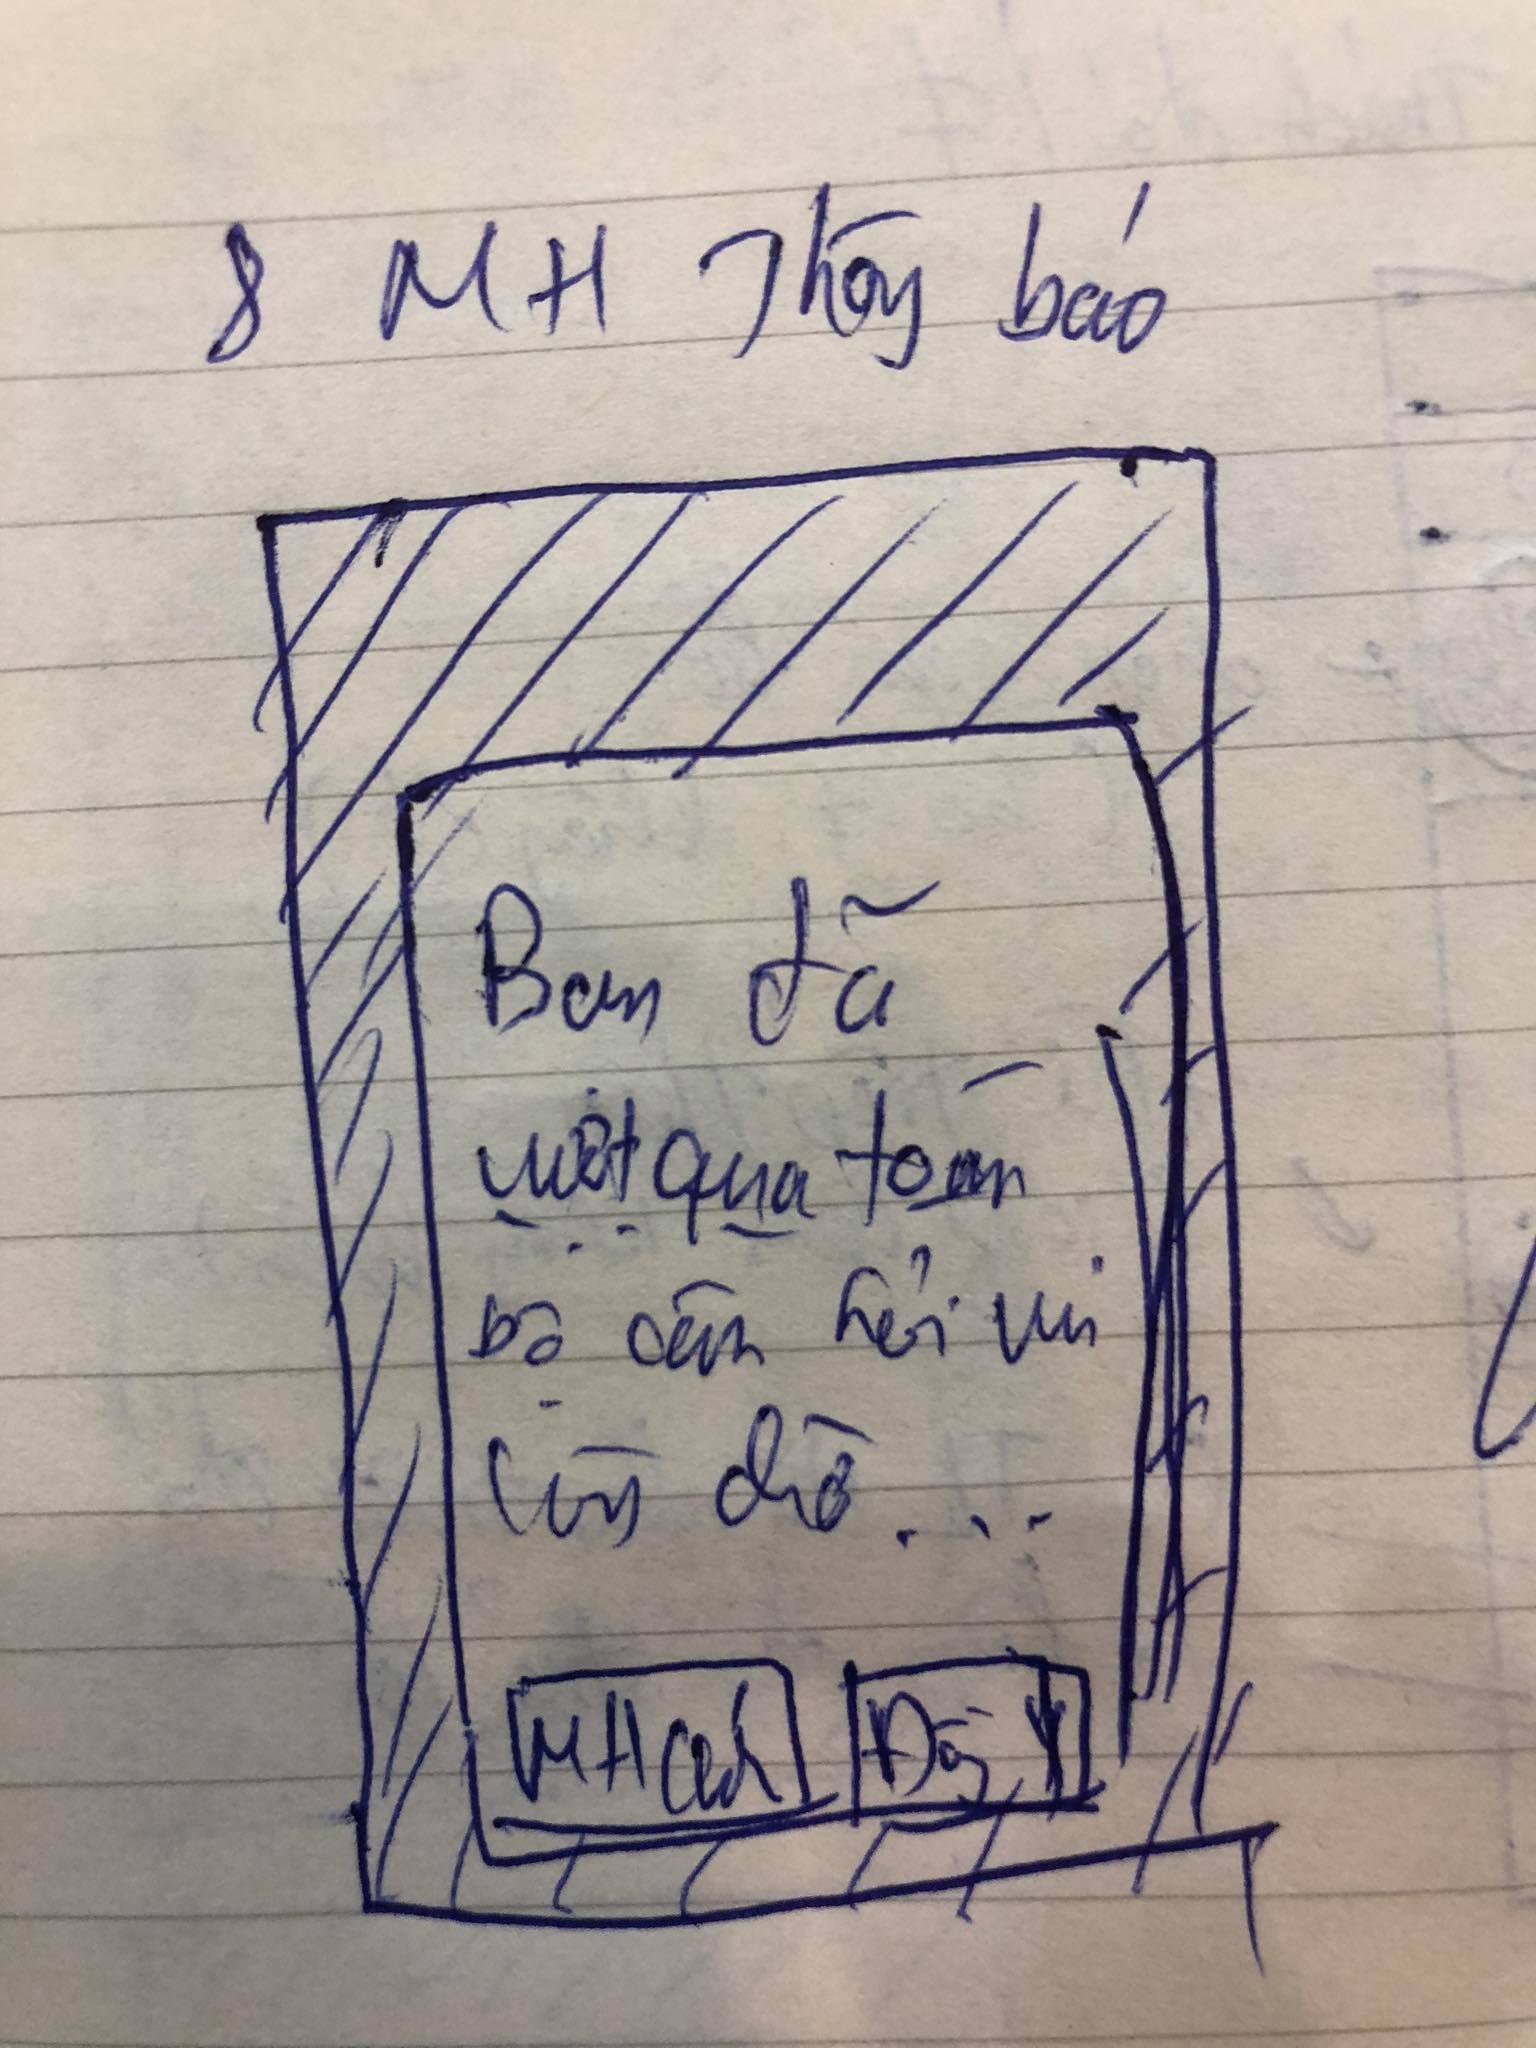 8 MH Thông báo
Bạn đã
vượt qua toàn
bộ câu hỏi vui
lòng chờ...
MH Đồng ý